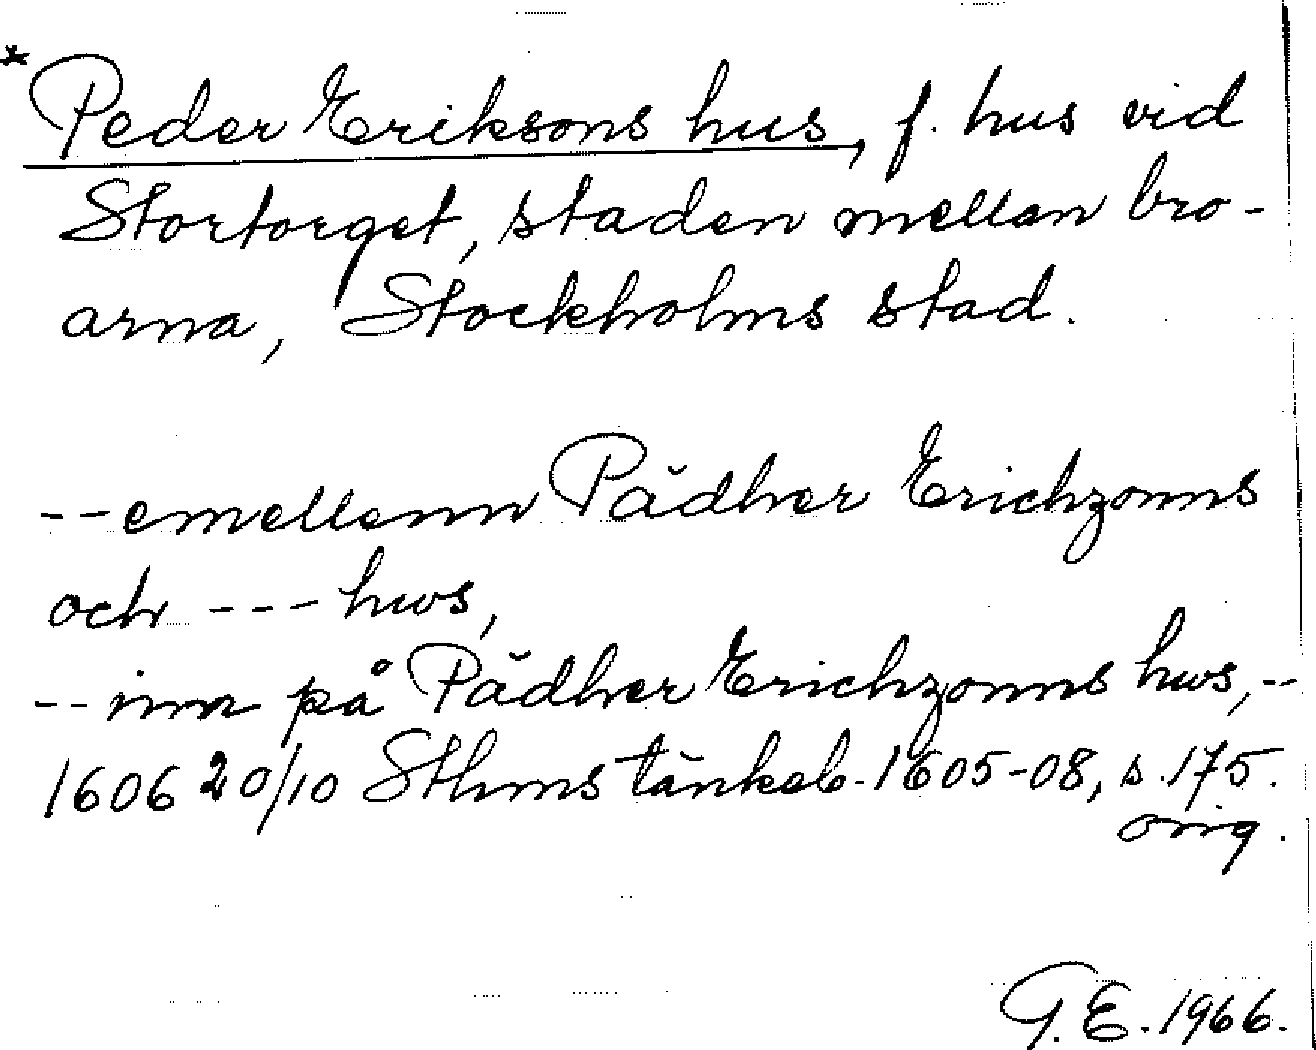 * Peder Eriksons hus, f. hus vid
Stortorget, staden mellan bro-
arna, Stockholms stad.
--emellenn Pädher Erichzonns
och --- hws,
--inn på Pädher Erichzonns hws,--
1606 20/10 Sthms tänkeb. 1605-08, s. 175.
orig.
G. E. 1966.